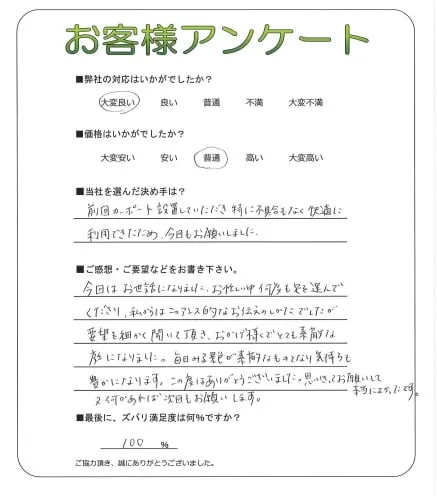 お客様アンケート
■弊社の対応はいかがでしたか？
大変良い 良い 普通 不満 大変不満
■価格はいかがでしたか？
大変安い 安い 普通 高い 大変高い
■当社を選んだ決め手は？
前回カーポート設置していただき特に不具合もなく快適に
利用できたため、今日もお願いしました。
■ご感想・ご要望などをお書き下さい。
今回はお世話になりました。お忙い中何度も足を運んで
くださり、私からはこのアレス的なお伝えのしかたでしたが
要望を細かく聞いて頂き、おかげ様でとても素敵な
庭になりました。毎日みる景色が素敵なものとなり気持ちも
豊かになります。この度はありがとうございました。思いきってお願いして
本当によかったです。
又何かあれば次回もお願いします。
■最後に、ズバリ満足度は何%ですか？
100 %
ご協力頂き、誠にありがとうございました。